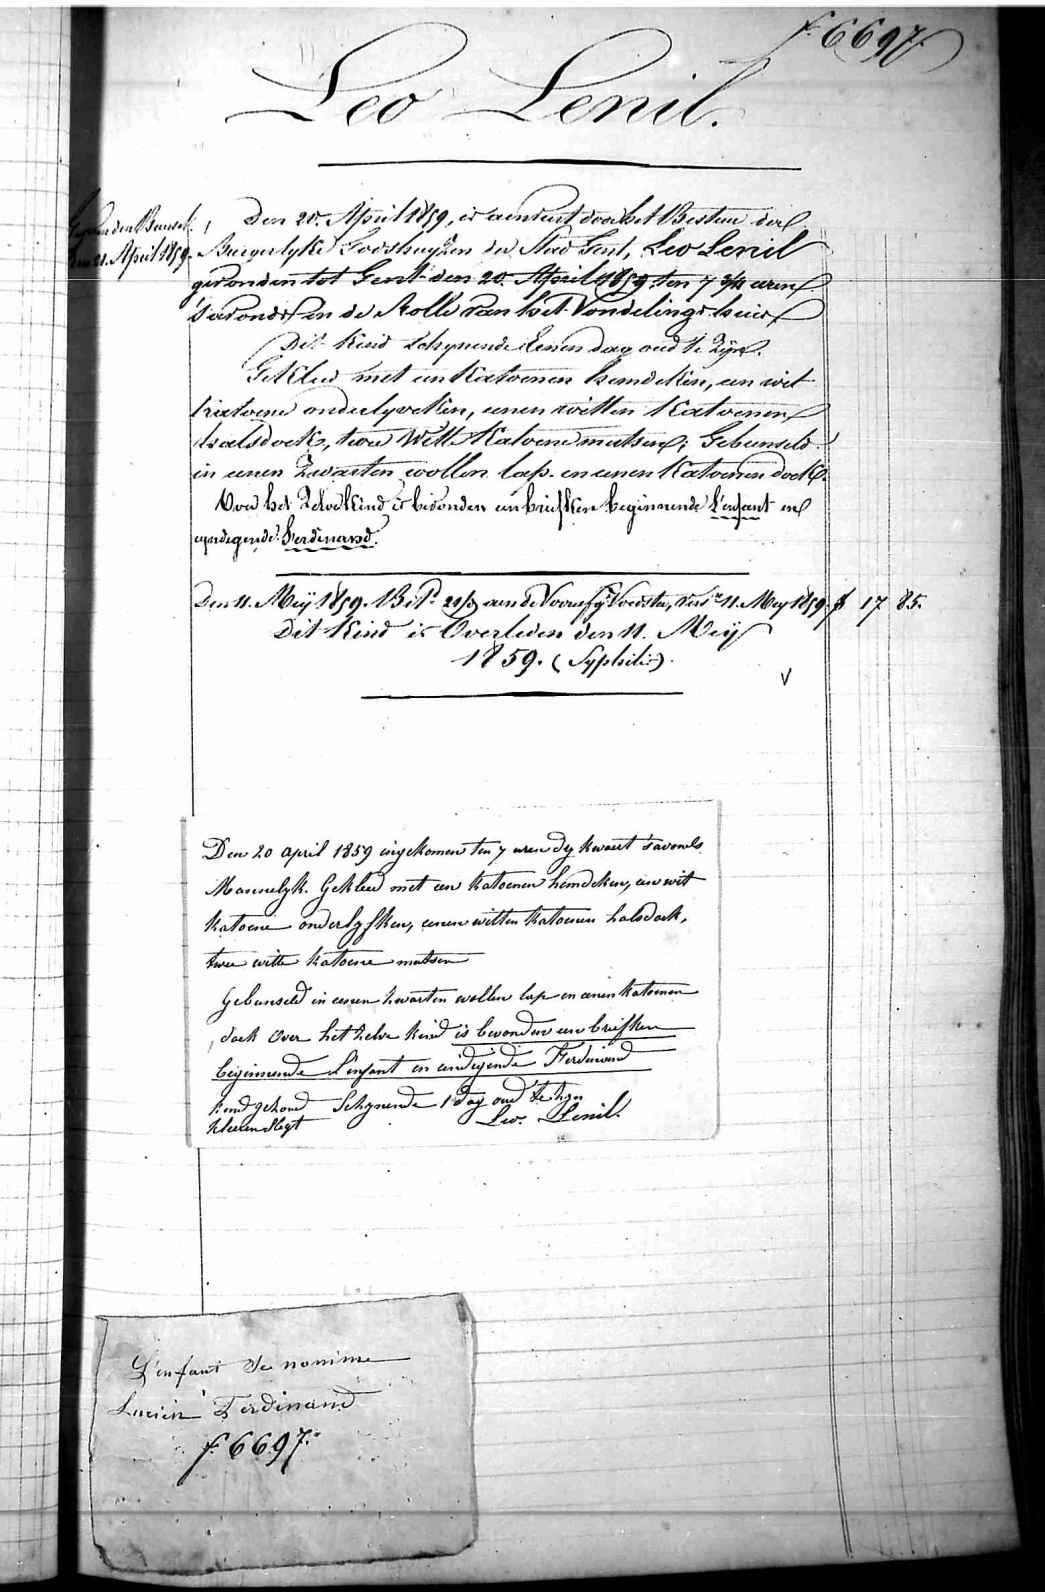 f. 6697.
Leo Lenil.
Den 20. April 1859, is aenveird door het Bestuur der
den 21. April 1859. Burgerlyke Godshuyzen der Stad Gent, Leo Lenil
gevonden tot Gent den 20. April 1859, ten 7 3/4 uren
's avonds in de Rolle van het Vondelings huis
Dit Kind schynende Eenen dag oud te Zyn.
Gekleed met een Katoenen hemdeken, een wit
katoene onderlyveken, eenen witten Katoenen
halsdoek, twee Witte Katoene mutsen; Gebunseld
in eenen Zwarten wollen lap en eenen Katoenen doek.
Voor het Zelve Kind is bevonden een briefken beginnende L'enfant en
eyndegende Ferdinand.
Den 11. Mey 1859. aen de Voedster, 11. Mey 1859. f 17 85.
Dit Kind is Overleden den 11. Mey
1859. (Syphilis).
Den 20 april 1859 ingekomen ten 7 uren dry kwaert s'avonds
Mannelyk. Gekleed met een katoenen hemdeken, een wit
katoene onderlyfken, eenen witten katoenen halsdoek,
twee witte katoene mutsen
Gebunseld in eenen zwarten wollen lap en eenen katoenen
doek Over het zelve kind is bevonden een briefken
beginnende L'enfant en eindigende Ferdinand
Schynende 1 dag oud te zyn
kleeren slegt Leo. Lenil.
L'enfant Se nomme
Lucien Ferdinand
f. 6697.